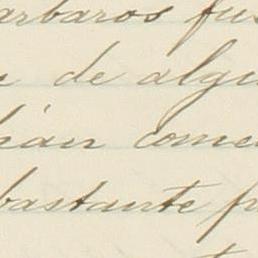 arbaros fus
de algu
han come
bastante p